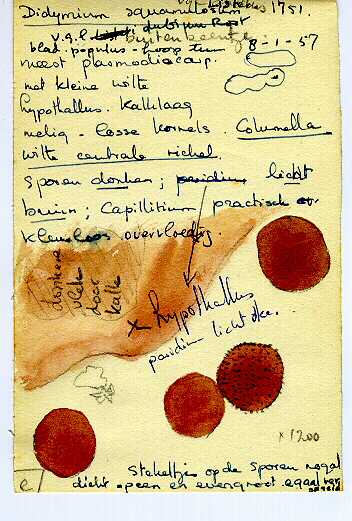 Didymium squamulosum 1751.
v.g.l. dubium Rost
buitenbeentje
blad. populus - hoop tuin 8-1-57
meest plasmodiocarp.
met kleine witte
hypothallus. Kalklaag
melig - losse korrels. Columella
witte centrale richel.
Sporen donker; peridium licht
bruin; Capillitium practisch
kleurloos overvloedig.
donkere
vlek
door
kalk
x hypothallus
peridium licht
x 1200
Stekeltjes op de sporen nogal
dicht opeen en evengroot. egaal
e